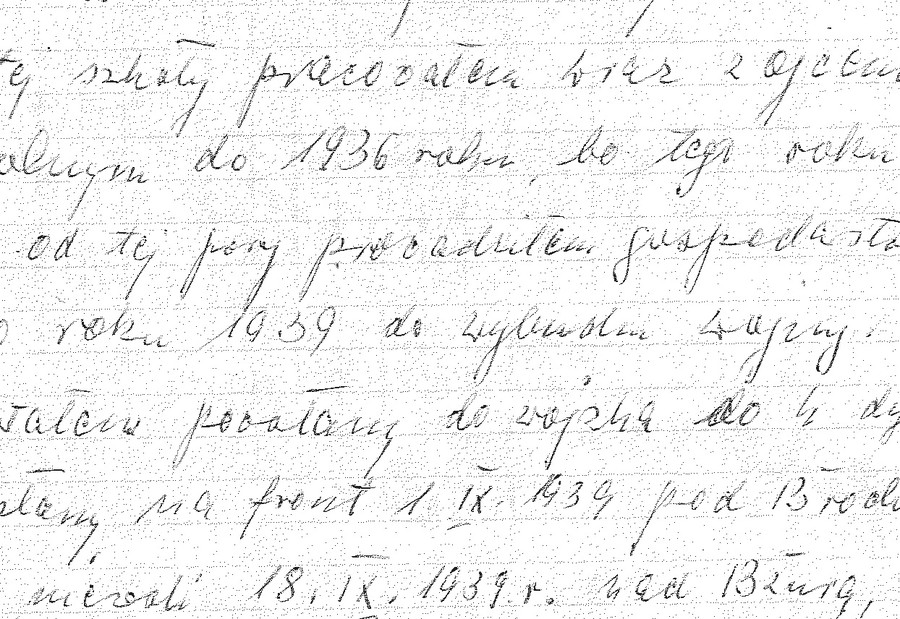 tej szkoły pracowałem wraz z ojcem
olnym do 1936 roku, bo tego roku
od tej pory prowadziłem gospodarstw
o roku 1939 do wybuchu wojny.
stałem powołany do wojska do 4 dy
słany na front 1 IX. 1939 pod Brod
niewoli 18. IX. 1939 r. nad Bzurą,